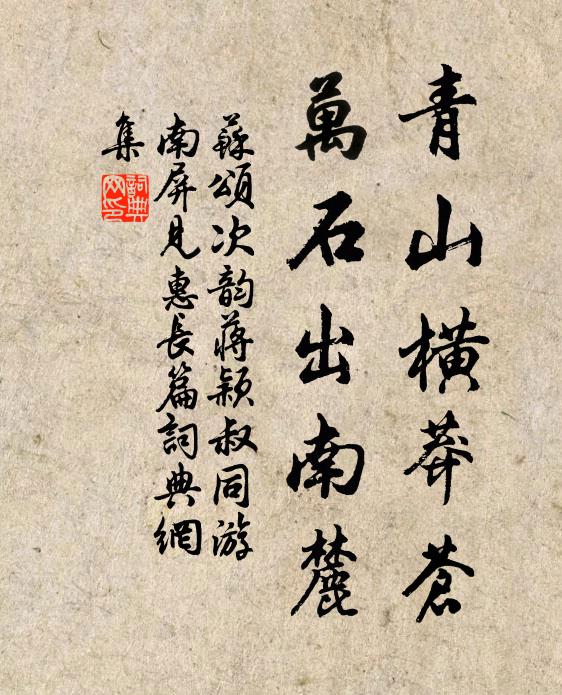 青山橫莽蒼
萬石出南麓
蘇頌次韵蔣颖叔同游
南屏見惠長篇詞典網
集
詞典
网印